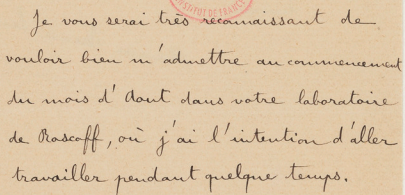 INSTITUT DE FRANCE
Je vous serai très reconnaissant de
vouloir bien m'admettre au commencement
du mois d'Aout dans votre laboratoire
de Roscoff, où j'ai l'intention d'aller
travailler pendant quelque temps.